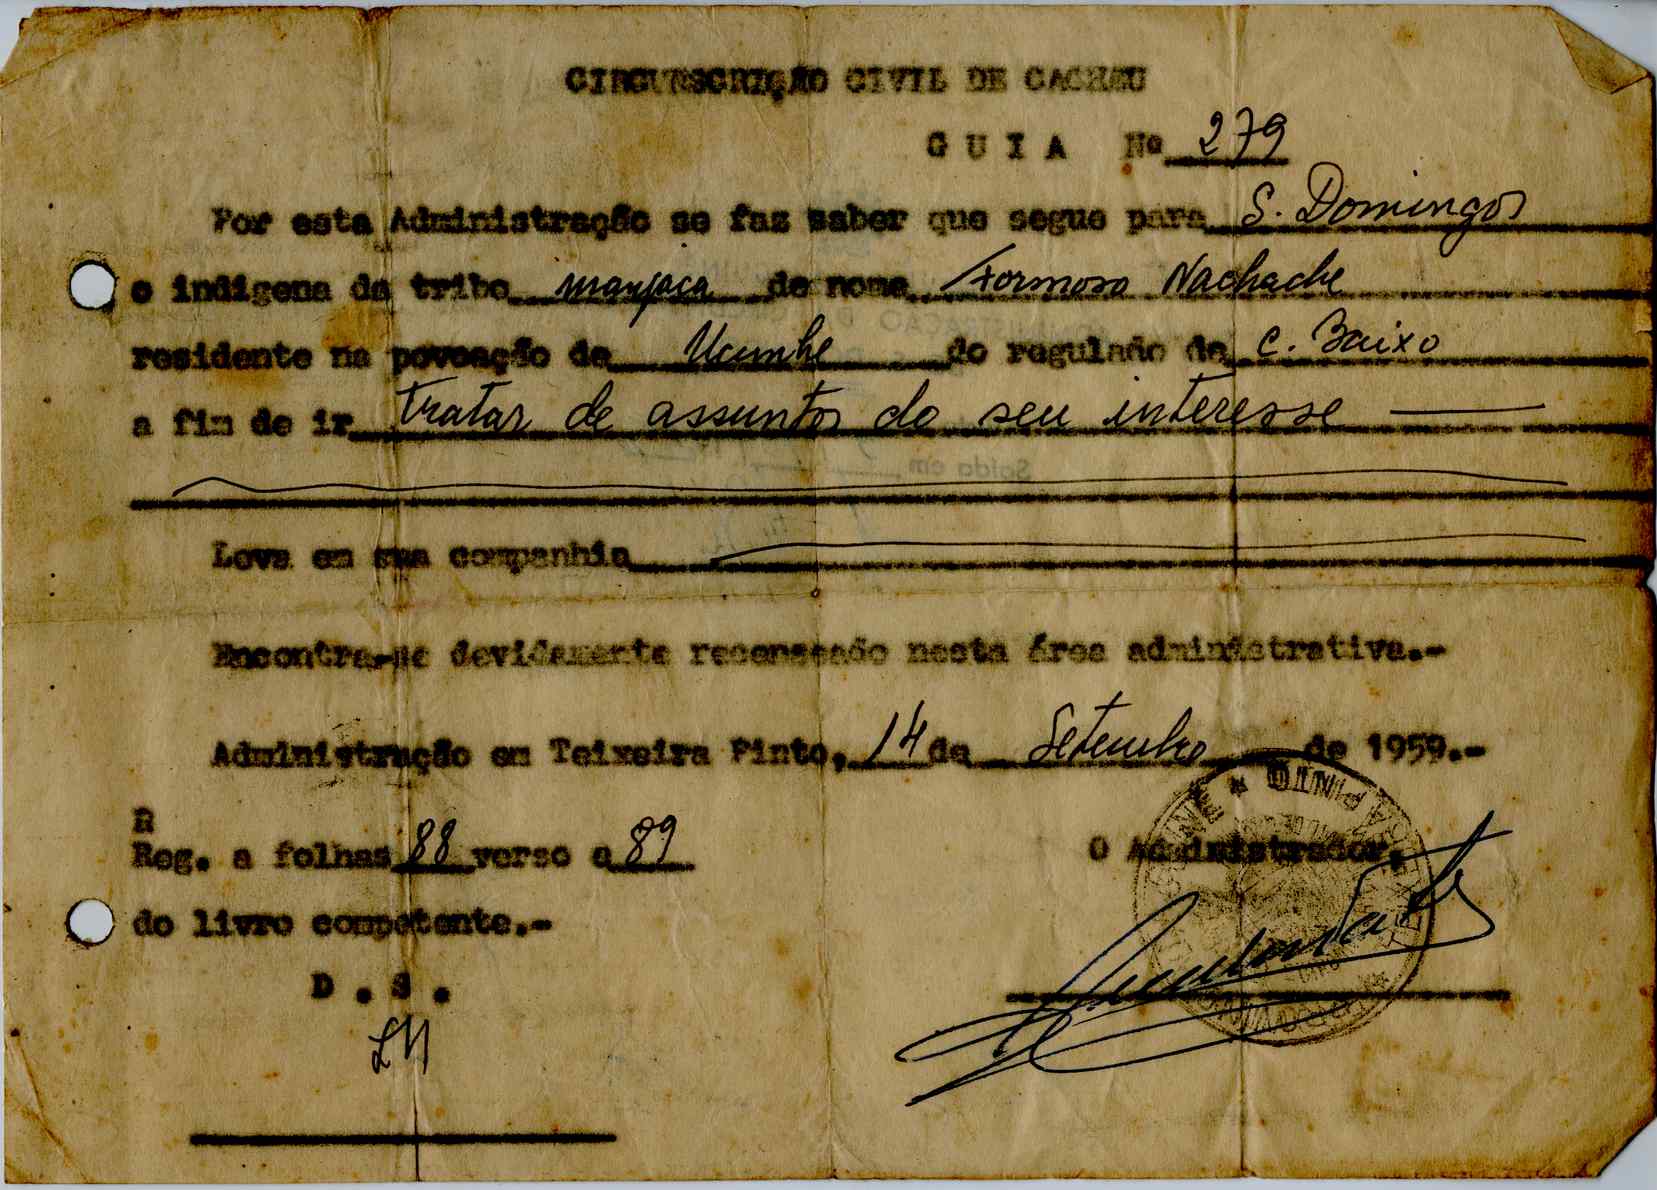 CIRCUNSCRIÇÃO CIVIL DE CACHEU
GUIA Nº 279
Por esta Administração se faz saber que segue para S. Domingos
o indigena da tribo manjaca de nome Formoso Nachache
residente na povoação de Ucunhe do regulado de C. Baixo
a fim de ir tratar de assuntos do seu interesse
Leva em sua companhia
Encontra-se devidamente recenseado nesta área administrativa.-
Administração em Teixeira Pinto, 14 de Setembro de 1959.-
R
Reg. a folhas 88 verso a 89
O Administrador,
do livro competente.-
D.S.